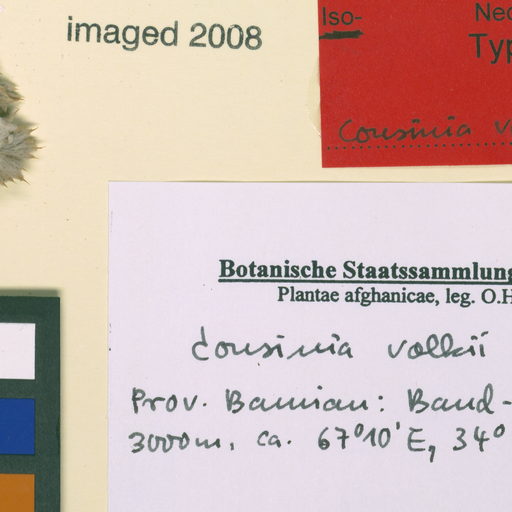 imaged 2008
Iso-
Cousinia
Botanische Staatssammlung
Plantae afghanicae, leg. O.H
Cousinia volkii
Prov. Bamian: Band-
3000m, ca. 67°10'E, 34°